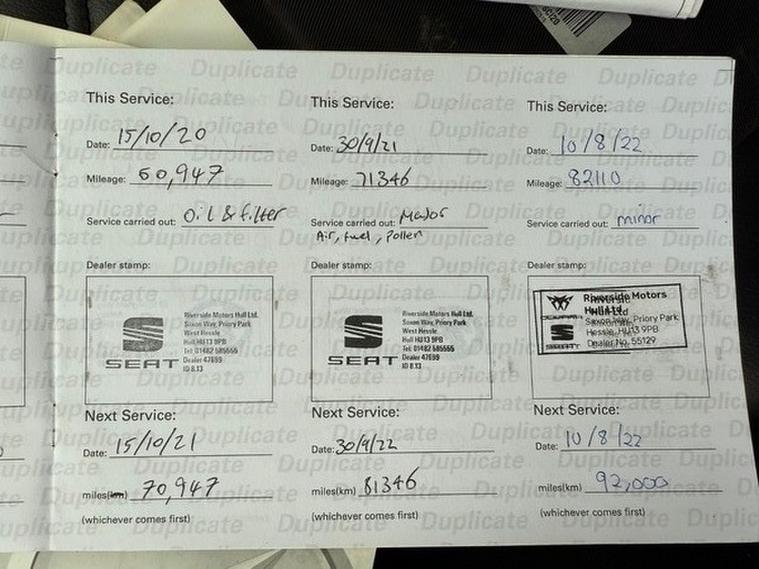 This Service:
Date: 15/10/20
Mileage: 60,947
Service carried out: Oil & filter
Dealer stamp:
SEAT
Riverside Motors Hull Ltd.
Saxon Way, Priory Park
West Hessle
Hull HU13 9PB
Tel: 01482 585555
Dealer 47699
ID 8.13
Next Service:
Date: 15/10/21
miles(km) 70,947
(whichever comes first)
This Service:
Date: 30/9/21
Mileage: 71346
Service carried out: Major
Air, fuel, Pollen
Dealer stamp:
SEAT
Riverside Motors Hull Ltd.
Saxon Way, Priory Park
West Hessle
Hull HU13 9PB
Tel: 01482 585555
Dealer 47699
ID 8.13
Next Service:
Date: 30/9/22
miles(km) 81346
(whichever comes first)
This Service:
Date: 10/8/22
Mileage: 82110
Service carried out: minor
Dealer stamp:
CUPRA
SEAT
Riverside Motors
Hull Ltd
Saxon Way, Priory Park
Hessle, HU13 9PB
Dealer No. 55129
Next Service:
Date: 10/8/22
miles(km) 92,000
(whichever comes first)
Duplicate